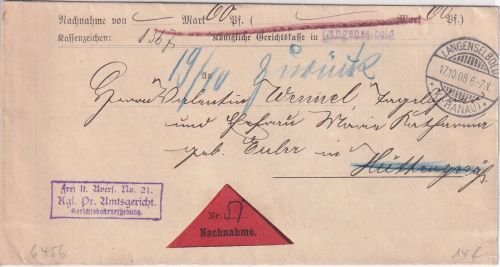 Nachnahme von — Mark 00 Pf. ( — Mark 00 Pf.)
Kassenzeichen: 1567. Königliche Gerichtskasse in Langenselbold
LANGENSELBOLD
17.10.08. 6-7N.
(HANAU)
19/10 Zurück
An
Herrn Valentin Wennel, Tagelöhner
und Ehefrau Marie Katharina
geb. Euler in Hüttengesäß
Frei lt. Avers. No. 21.
Kgl. Pr. Amtsgericht.
Nr. 57
Nachnahme.
6456
14€